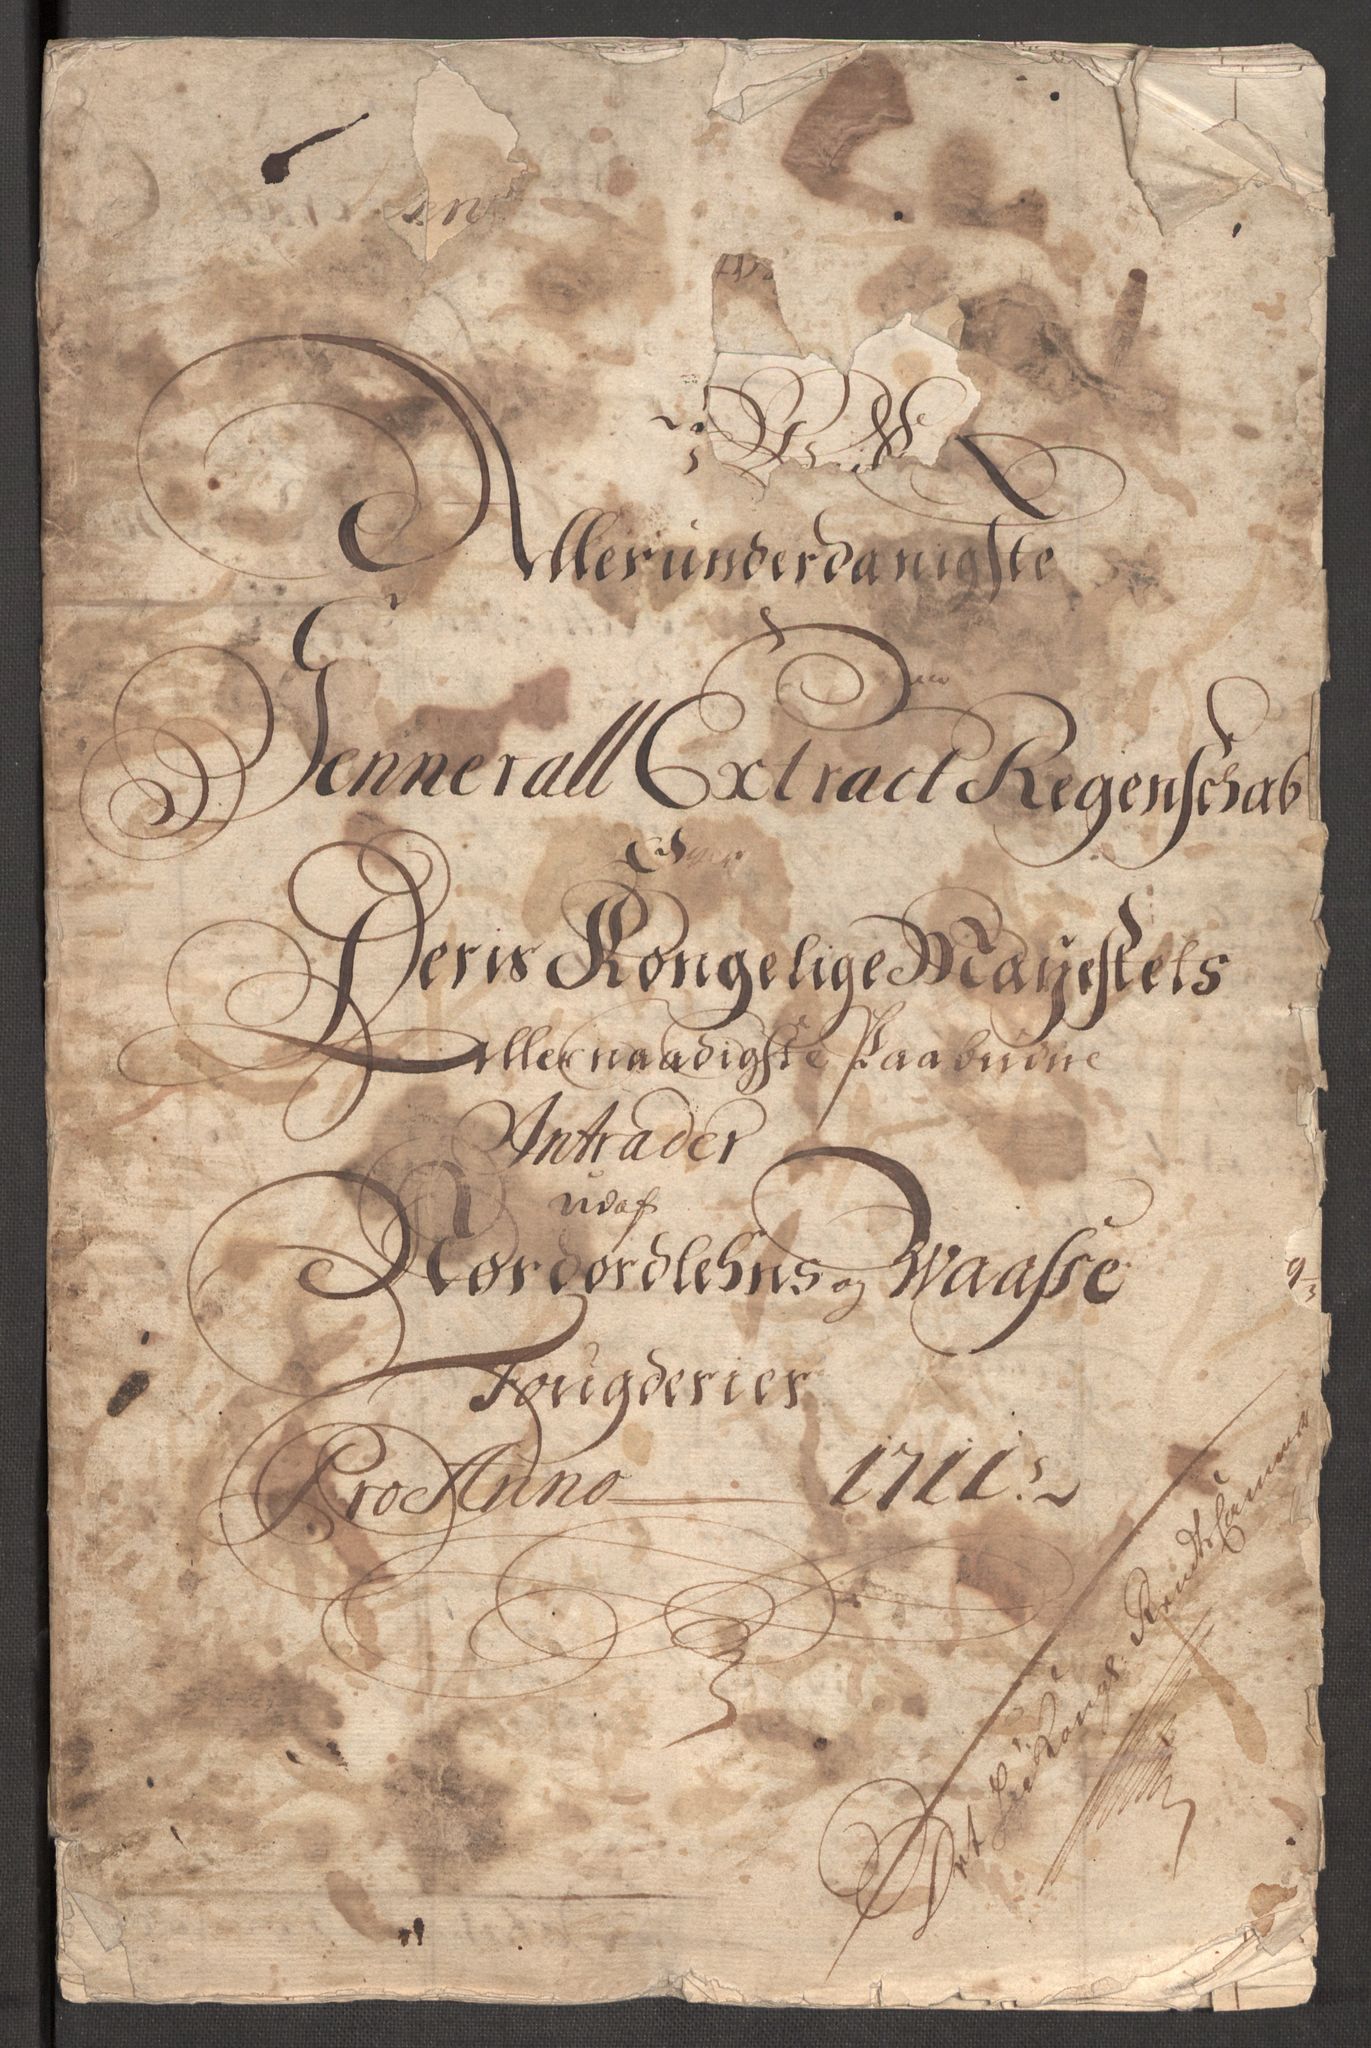 Allerunderdanigste
Jennerall Extract Regenschab
Over
Deris Kongelige Mayestets
Allernaadigste Paabudne
Intrader
udaf
Nordordlehns og Waasse
Fougderier
Pro Anno 1711
Det Kongl: Rendte Cammer